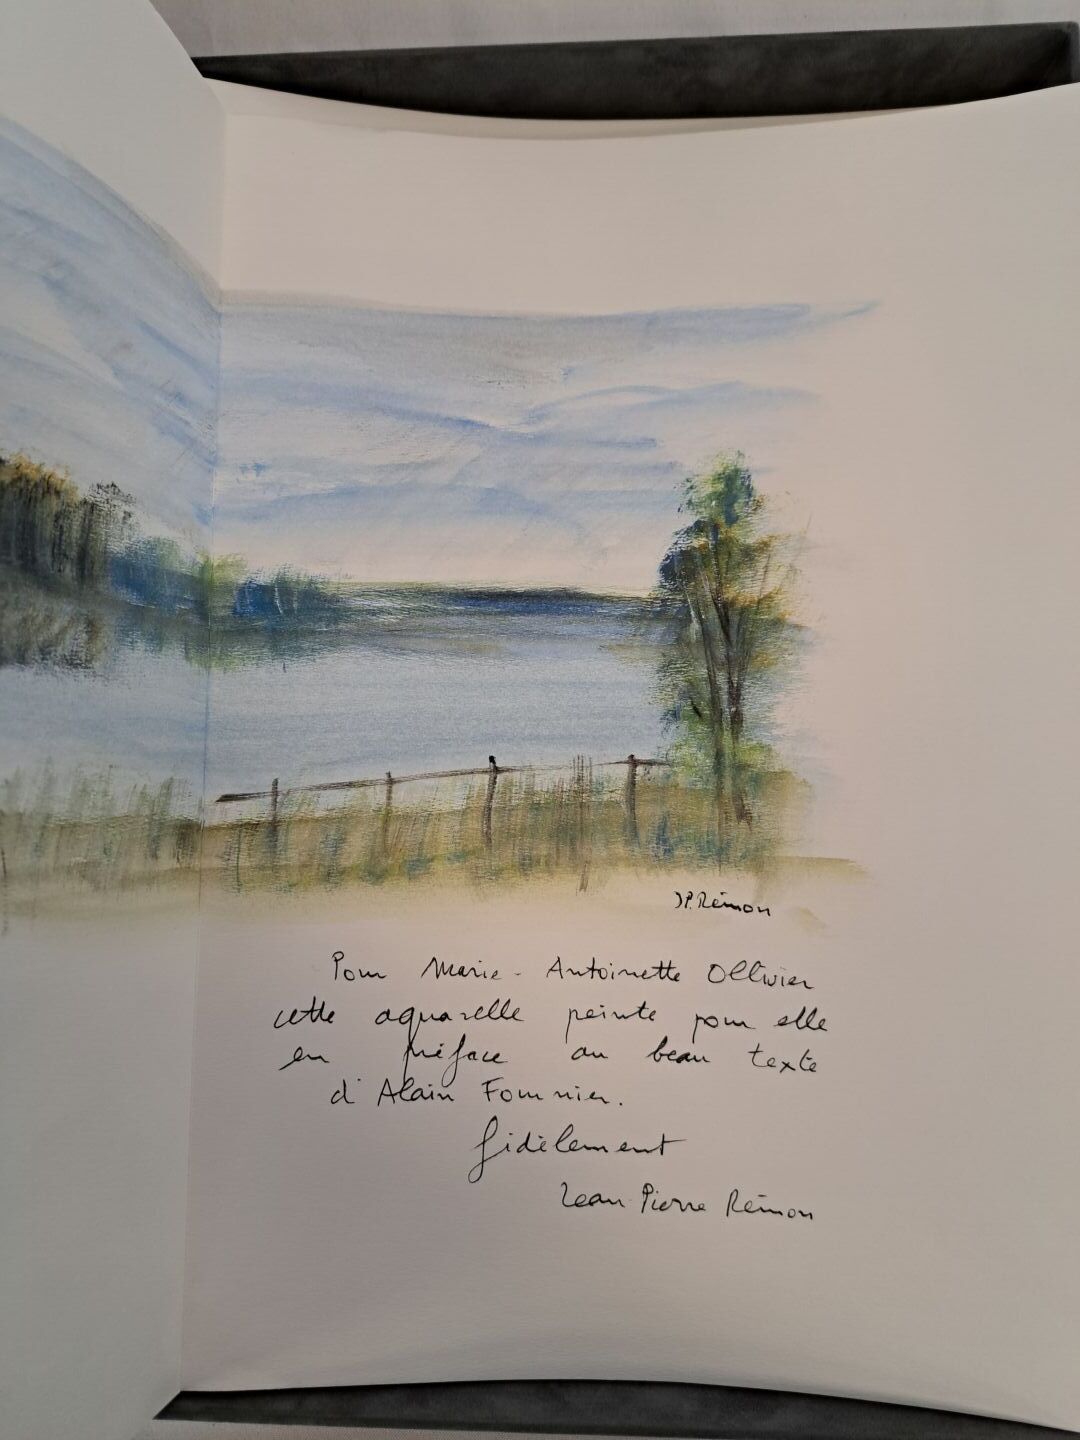 J.P. Rémon
Pour Marie-Antoinette Ollivier
cette aquarelle peinte pour elle
en préface au beau texte
d'Alain Fournier.
fidèlement
Jean-Pierre Rémon